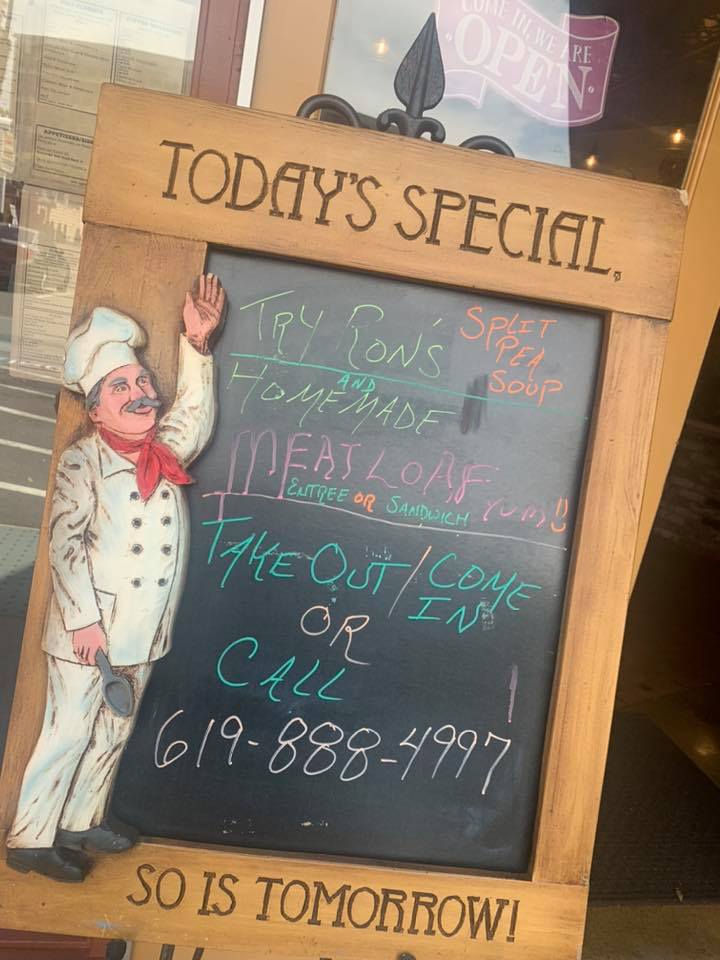 COME IN, WE ARE
OPEN
TODAY'S SPECIAL,
TRY RON'S
SPLIT
PEA
SOUP
AND
HOMEMADE
MEATLOAF
YUM!!
ENTREE OR SANDWICH
TAKE OUT / COME
IN
OR
CALL
619-888-4997
SO IS TOMORROW!